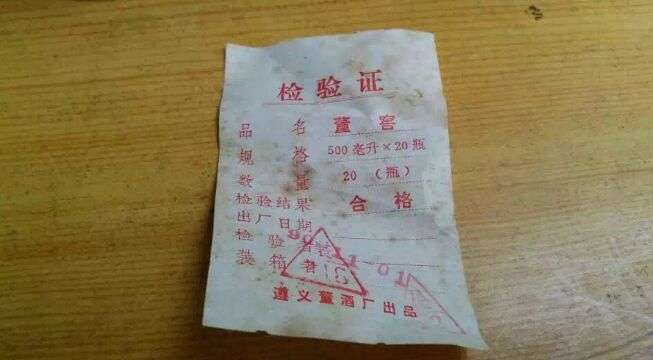 检验证
品名 董窖
规格 500毫升×20瓶
数量 20（瓶）
检验结果 合格
出厂日期
检验者
装箱者
遵义董酒厂出品